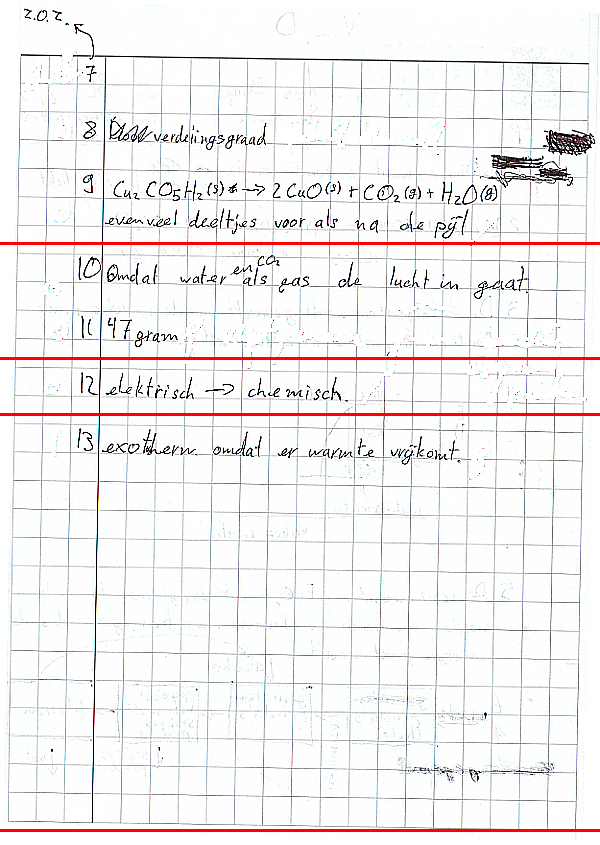 z.O.Z.
7
8 verdelingsgraad
9 Cu₂CO₅H₂(s) → 2 CuO(s) + CO₂(g) + H₂O(g)
evenveel deeltjes voor als na de pijl
10 Omdat water en CO₂ als gas de lucht in gaat.
11 47 gram
12 elektrisch → chemisch.
13 exotherm omdat er warmte vrijkomt.